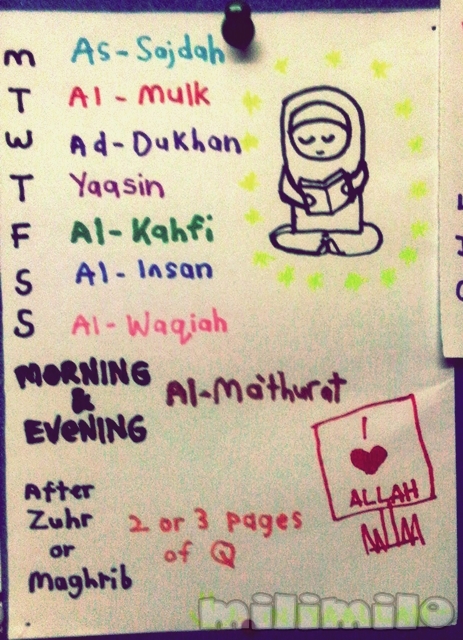 M As-Sajdah
T Al-Mulk
W Ad-Dukhan
T Yaasin
F Al-Kahfi
S Al-Insan
S Al-Waqiah
MORNING
&
EVENING
Al-Mathurat
I
ALLAH
After
Zuhr
or
Maghrib
2 or 3 pages
of Q
milimilo